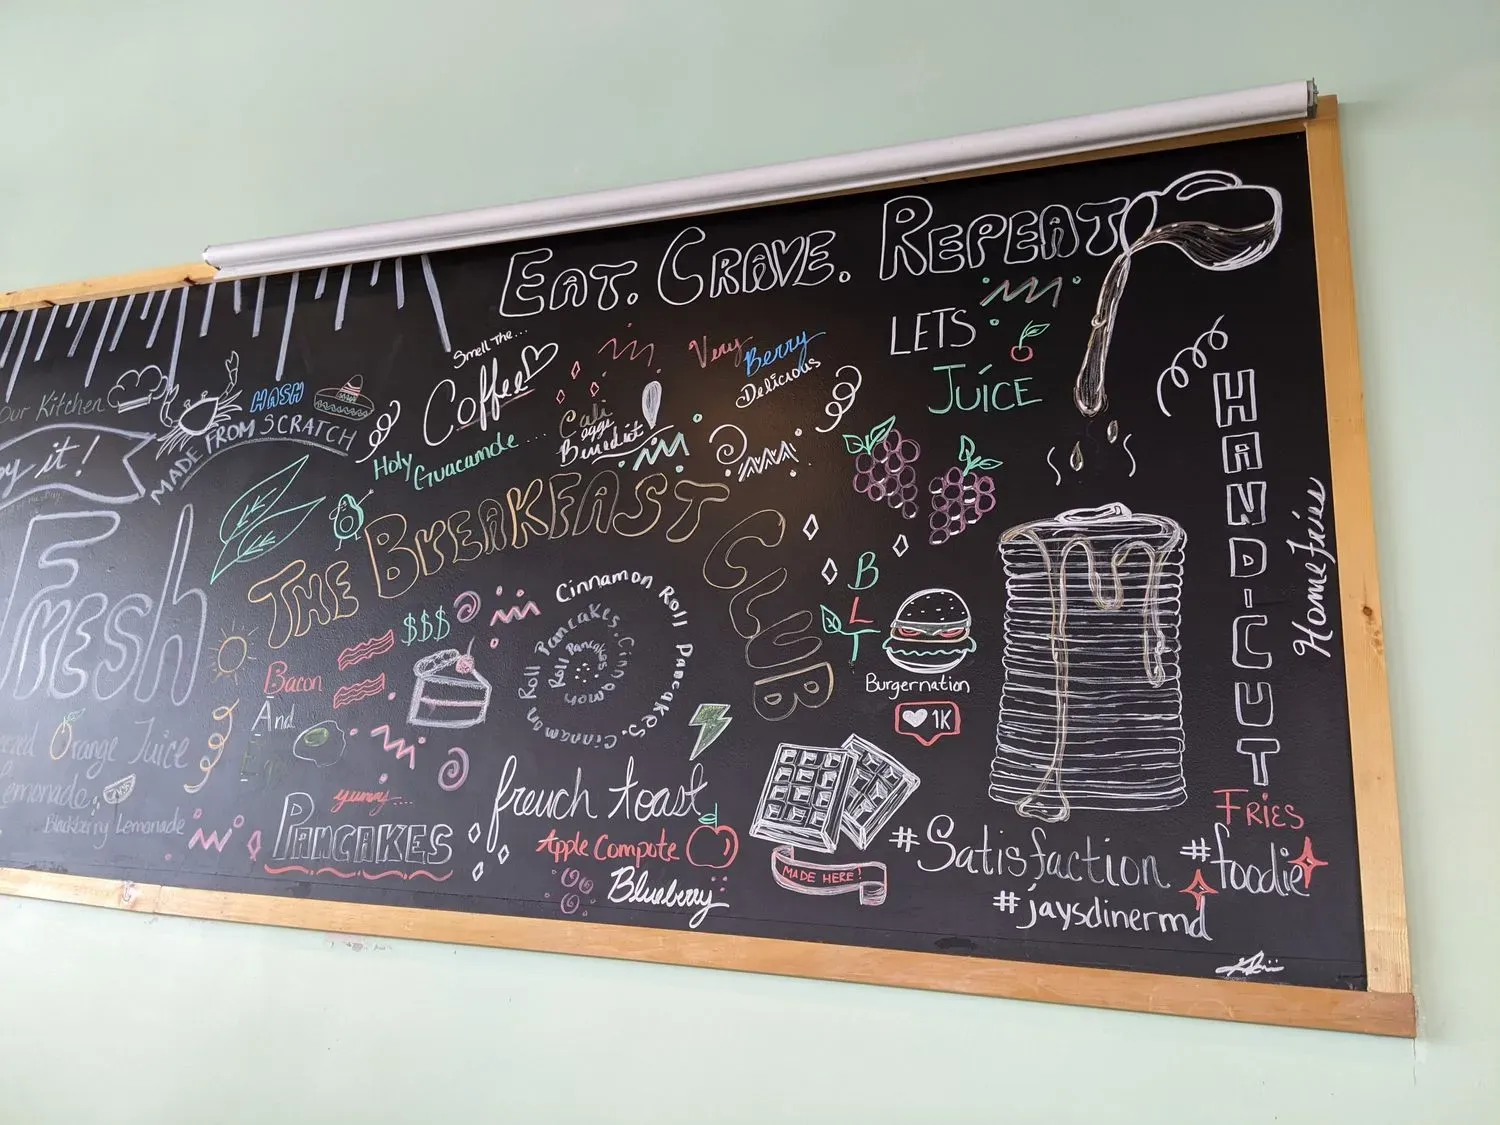 EAT. CRAVE. REPEAT
Our Kitchen
it!
HASH
MADE FROM SCRATCH
Smell The...
Coffee
Holy
Guacamole....
Cali
Eggs
Benedict
Very
Berry
Delicious
LETS
JUICE
FRESH
THE BREAKFAST
CLUB
$$$
Bacon
And
Cinnamon Roll Pancakes. Cinnamon Roll Pancakes. Cinnamon Roll Pancakes
BLT
Burgernation
1K
HANDICUT
Home Fries
FRIES
Orange Juice
Lemonade,
Blackberry Lemonade
yummy....
PANCAKES
french toast
Apple Compote
Blueberry
MADE HERE!
#Satisfaction
#foodie
#jaysdinermd